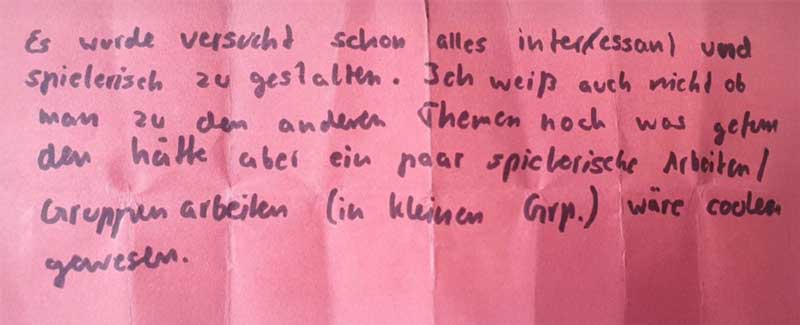 Es wurde versucht schon alles interessant und
spielerisch zu gestalten. Ich weiß auch nicht ob
man zu den anderen Themen noch was gefun
den hätte aber ein paar spielerische Arbeiten/
Gruppenarbeiten (in kleinen Grp.) wäre cooler
gewesen.